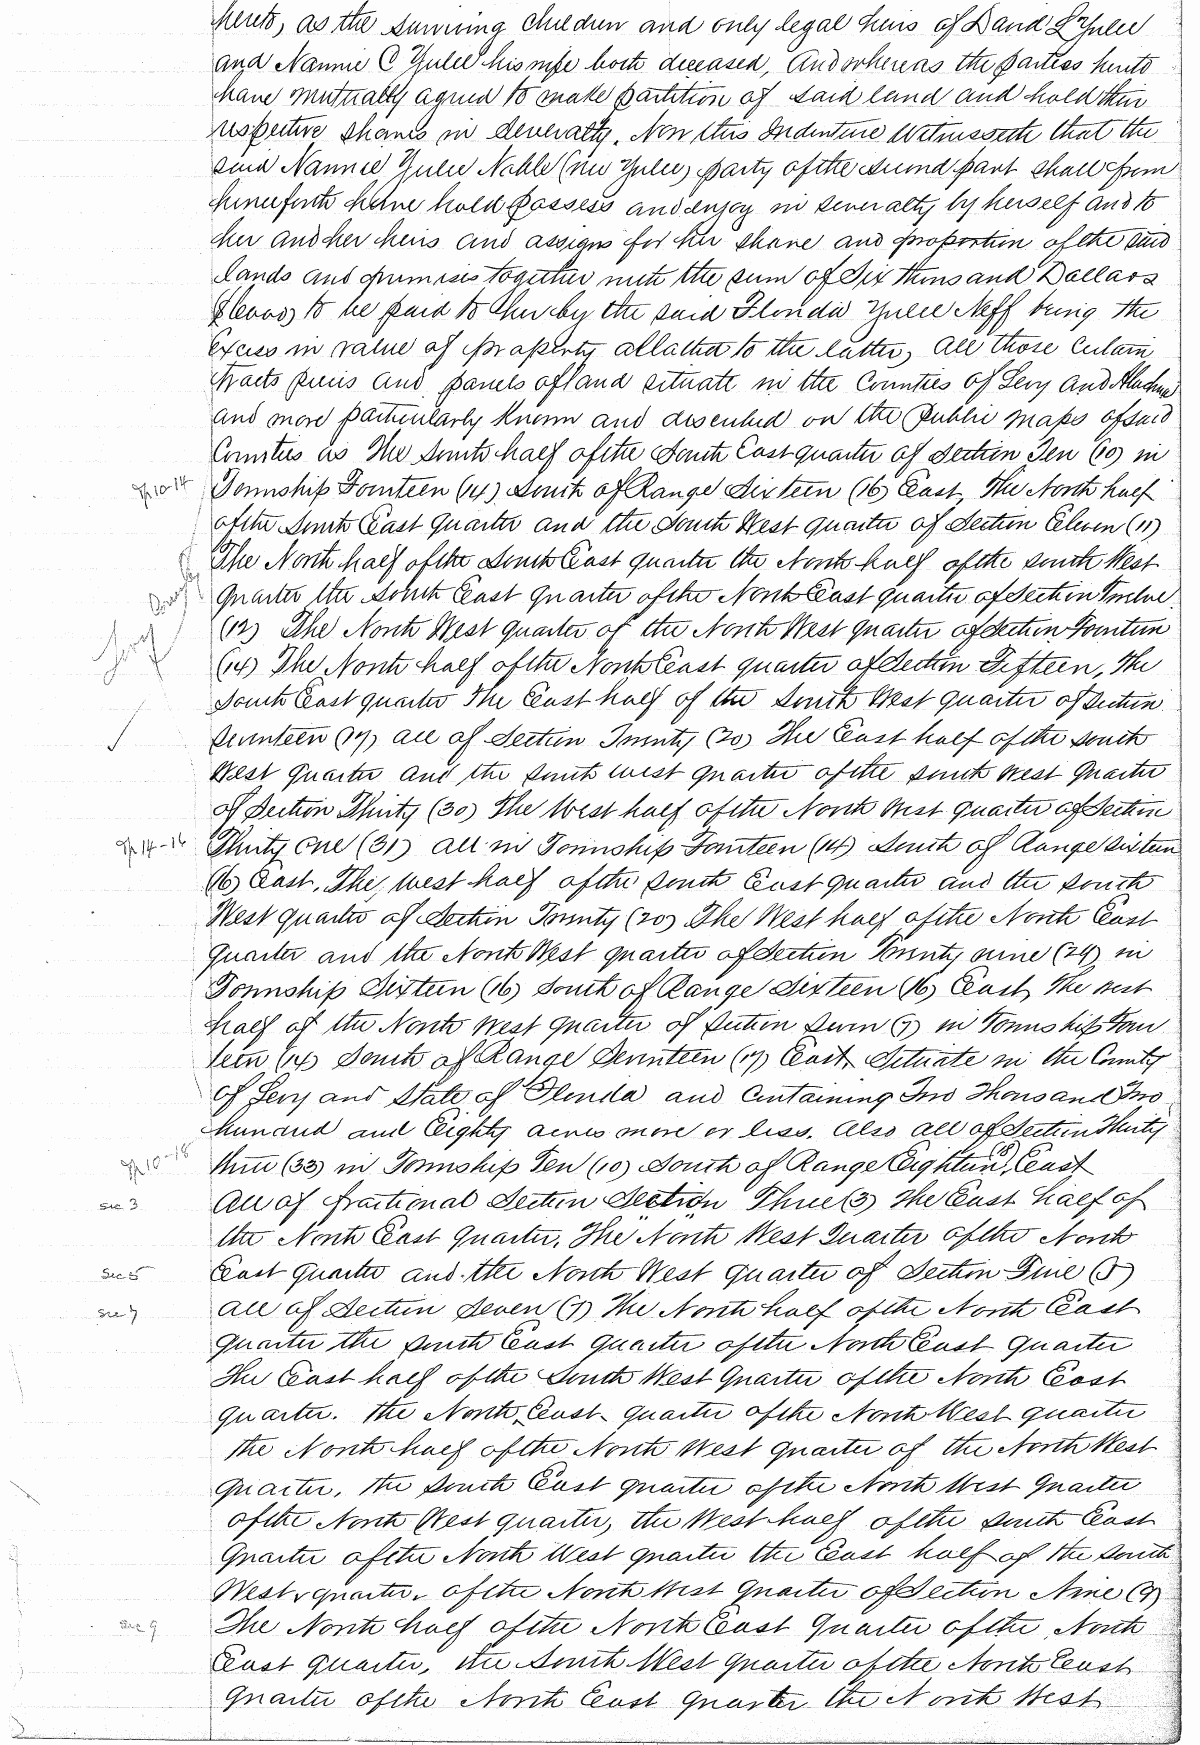 hereto, as the surviving children and only legal heirs of David L Yulee
and Nannie C Yulee his wife both deceased, And whereas the parties hereto
have mutually agreed to make partition of said land and hold their
respective shares in severalty. Now this Indenture Witnesseth that the
said Nannie Yulee Noble (nee Yulee) party of the second part shall from
henceforth have hold possess and enjoy in severalty by herself and to
her and her heirs and assigns for her share and proportion of the said
lands and premises together with the sum of Six thousand Dollars
$6000) to be paid to her by the said Florida Yulee Neff being the
excess in value of property allotted to the latter, all those certain
tracts pieces and parcels of land situate in the Counties of Levy and Alachua
and more particularly known and described on the Public maps of said
Counties as The South half of the South East quarter of Section Ten (10) in
Tp 10-14 Township Fourteen (14) South of Range Sixteen (16) East, The North half
of the South East quarter and the South West quarter of Section Eleven (11)
The North half of the South East quarter the North half of the South West
quarter the South East quarter of the North East quarter of Section Twelve
Levy (12) The North West quarter of the North West quarter of Section Fourteen
(14) The North half of the North East quarter of Section Fifteen, The
South East quarter The East half of the South West quarter of Section
Seventeen (17) all of Section Twenty (20) The East half of the South
West quarter and the south west quarter of the south west quarter
of Section Thirty (30) The West half of the North West quarter of Section
Tp 14-16 Thirty one (31) all in Township Fourteen (14) South of Range sixteen
(16) East. The west half of the south East quarter and the south
West quarter of Section Twenty (20) The West half of the North East
quarter and the North West quarter of Section Twenty nine (29) in
Township Sixteen (16) South of Range Sixteen (16) East, The west
half of the North West quarter of Section Seven (7) in Township Four
teen (14) South of Range Seventeen (17) East. Situate in the County
of Levy and State of Florida and Containing Two Thousand Two
hundred and Eighty acres more or less. Also all of Section Thirty
Tp 10-18 three (33) in Township Ten (10) South of Range Eighteen (18) East
sec 3 All of fractional Section Section Three (3) The East half of
the North East quarter. The North West Quarter of the North
Sec 5 East quarter and the North West quarter of Section Five (5)
Sec 7 all of Section Seven (7) The North half of the North East
quarter the south East quarter of the North East quarter
The East half of the South West Quarter of the North East
quarter. the North East quarter of the North West quarter
the North half of the North West quarter of the North West
quarter, the South East quarter of the North West Quarter
of the North West quarter, the West half of the south East
Quarter of the North West quarter the East half of the South
West quarter of the North West Quarter of Section Nine (9)
Sec 9 The North half of the North East Quarter of the North
East quarter, the South West Quarter of the North East
quarter of the North East quarter the North West